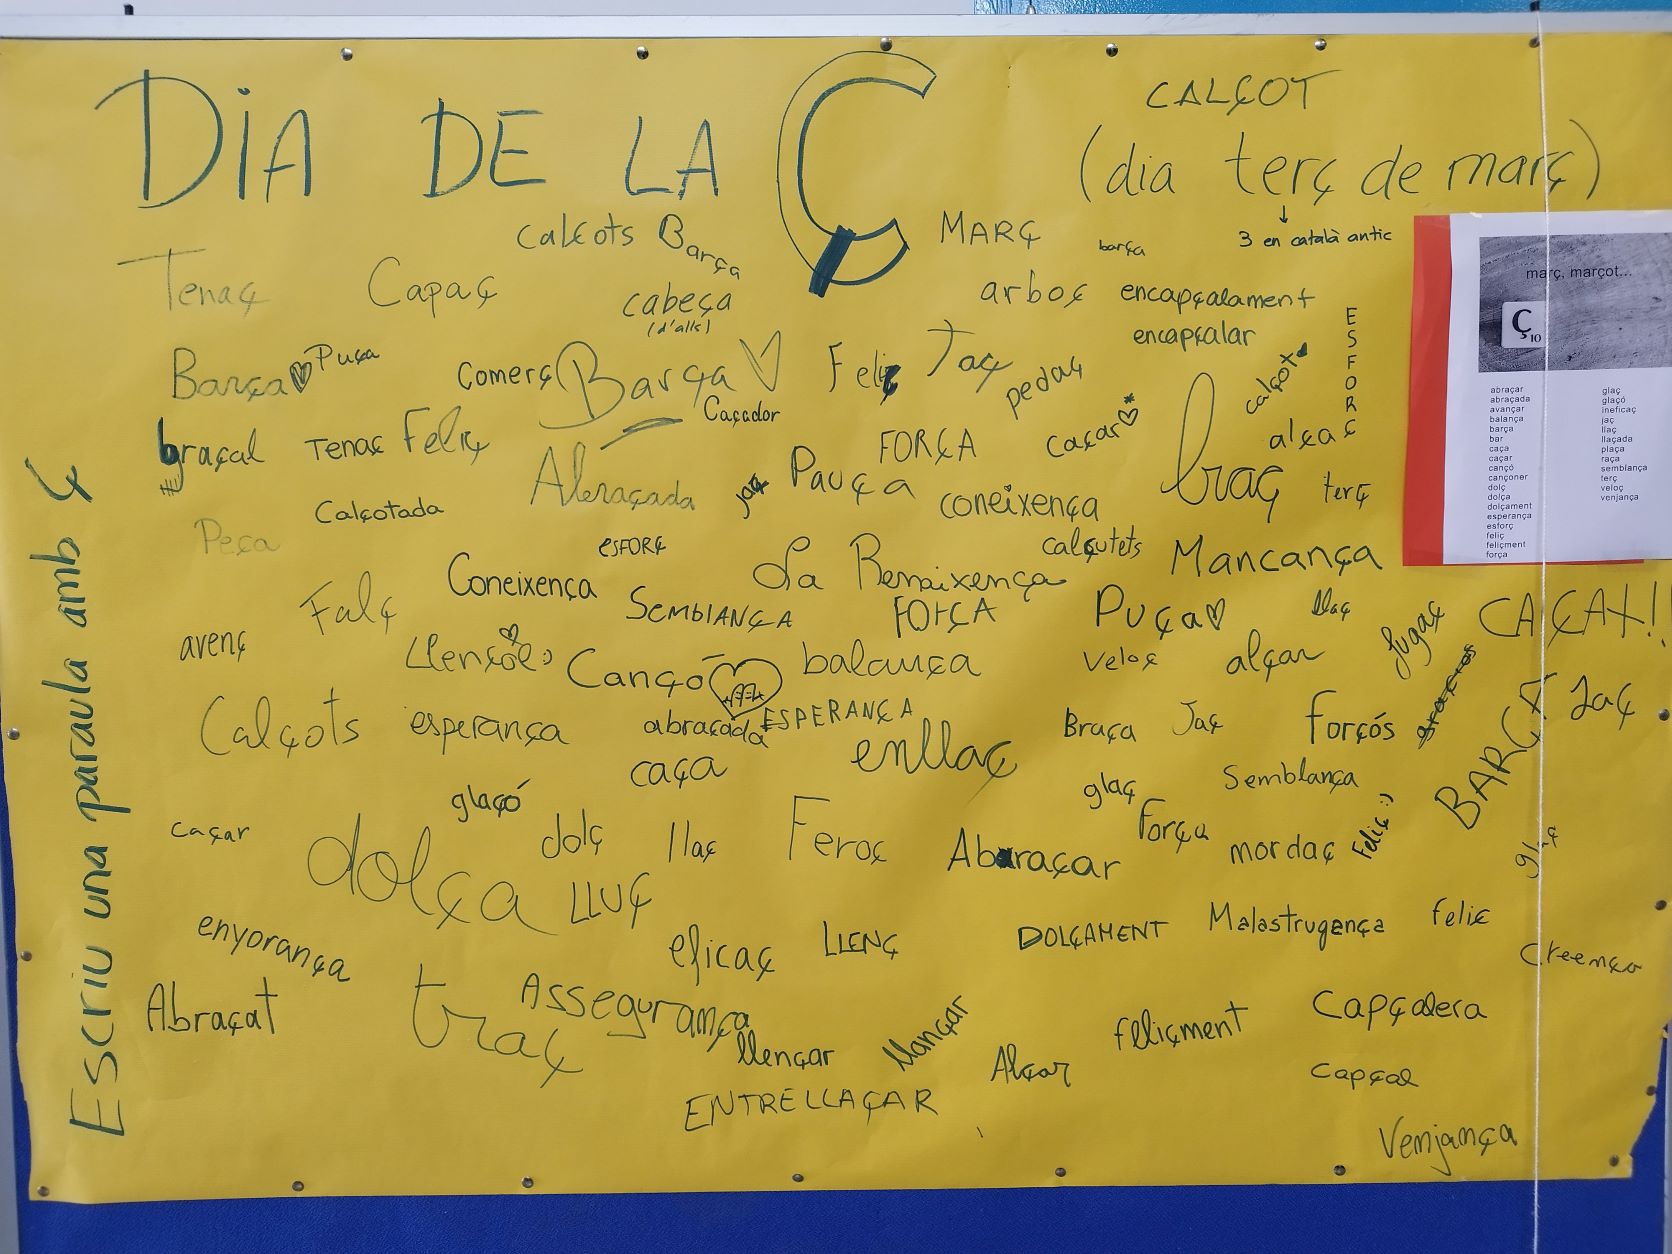 DIA DE LA Ç
CALÇOT
(dia terç de març)
3 en català antic
Escriu una paraula amb ç
calçots Barça
MARÇ
barça
Tenaç
Capaç
cabeça
(d'alls)
arboç
encapçalament
encapçalar
ESFORÇ
Barça
Puça
comerç
Barça
Feliç
Taç
pedaç
calçot
Caçador
braçal
Tenaç
Feliç
FORÇA
caçar
alça
Abraçada
jaç
Pauça
coneixença
braç
terç
Calçotada
Peça
ESFORÇ
La Renaixença
calçutets
Mancança
Coneixença
Falç
SEMBLANÇA
FORÇA
Puça
llaç
jugaç
CAÇAT!!
avenç
Llençol :)
Cançó
balança
veloç
alçar
Calçots
esperança
abraçada
ESPERANÇA
enllaç
Braça
Jaç
forçós
BARÇA
Jaç
caça
glaçó
glaç
Semblança
caçar
dolça
dolç
llaç
Feroç
Abraçar
força
mordaç
Feliç :)
glaç
LLUÇ
enyorança
eficaç
LLENÇ
DOLÇAMENT
Malastrugança
feliç
Creença
Abraçat
traç
Assegurança
llençar
Mançar
Alçar
feliçment
Capçalera
capçal
ENTRELLAÇAR
Venjança
març, marçot...
Ç10
abraçar
abraçada
avançar
balança
barça
bar
caça
caçar
cançó
cançoner
dolç
dolça
dolçament
esperança
esforç
feliç
feliçment
força
glaç
glaçó
ineficaç
jaç
llaç
llaçada
plaça
raça
semblança
terç
veloç
venjança